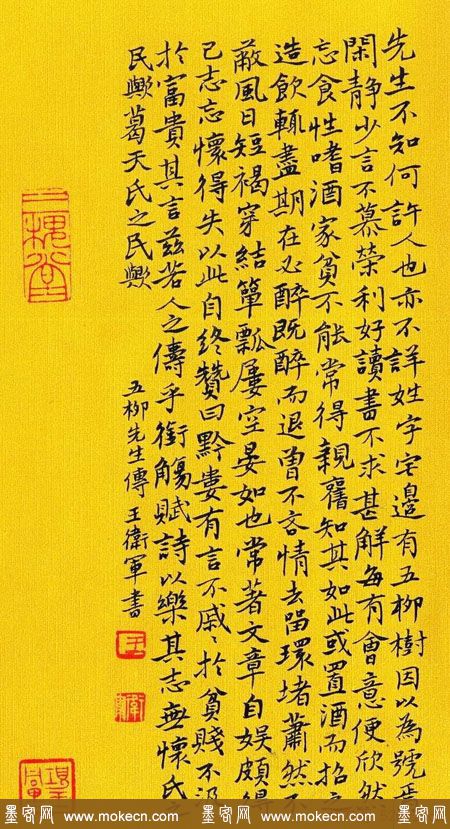 先生不知何許人也亦不詳姓字宅邊有五柳樹因以為號焉
閑靜少言不慕榮利好讀書不求甚解每有會意便欣然
忘食性嗜酒家貧不能常得親舊知其如此或置酒而招之
造飲輒盡期在必醉既醉而退曾不吝情去留環堵蕭然不
蔽風日短褐穿結簞瓢屢空晏如也常著文章自娛頗得
己志忘懷得失以此自終贊曰黔婁有言不戚〻於貧賤不汲
於富貴其言茲若人之儔乎銜觴賦詩以樂其志無懷氏之
民歟葛天氏之民歟
五柳先生傳 王衛軍書
王
衛軍
三槐堂
墨客网 www.mokecn.com 墨客网 www.mokecn.com 墨客网